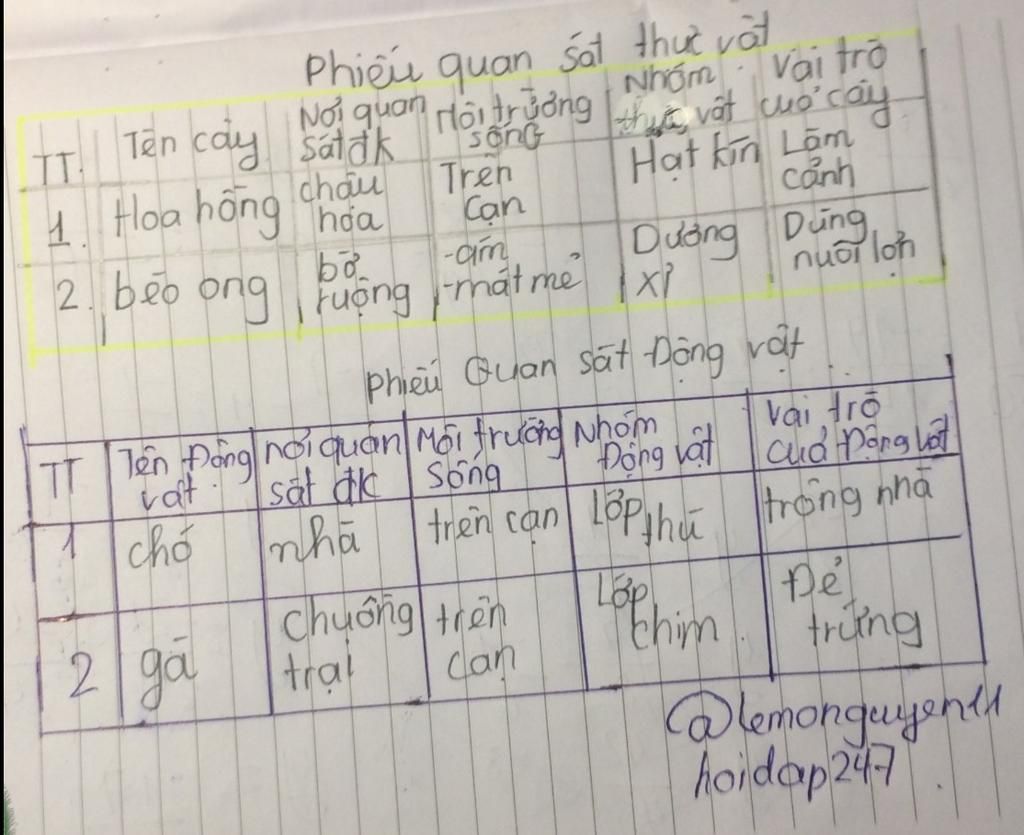 Phiếu quan sát thực vật
TT. Tên cây Nơi quan sát đk Môi trường sống Nhóm thực vật Vai trò của cây
1. Hoa hồng chậu hoa Trên cạn Hạt kín Làm cảnh
2. bèo ong bờ ruộng -ẩm -mát mẻ Dương xỉ Dùng nuôi lợn
Phiếu Quan sát Động vật
TT Tên Động vật nơi quan sát đk Môi trường sống Nhóm Động vật Vai trò của Động vật
1 chó nhà trên cạn Lớp thú trông nhà
2 gà chuồng trại trên cạn Lớp chim. Đẻ trứng
@lemonguyen11
hoidap247